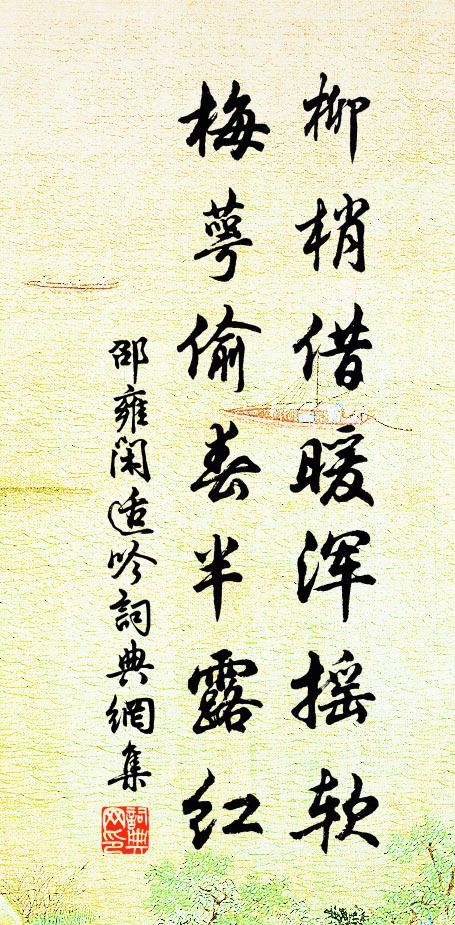 柳梢借暖浑摇软
梅萼偷春半露红
邵雍闲适吟詞典網集
詞典网印